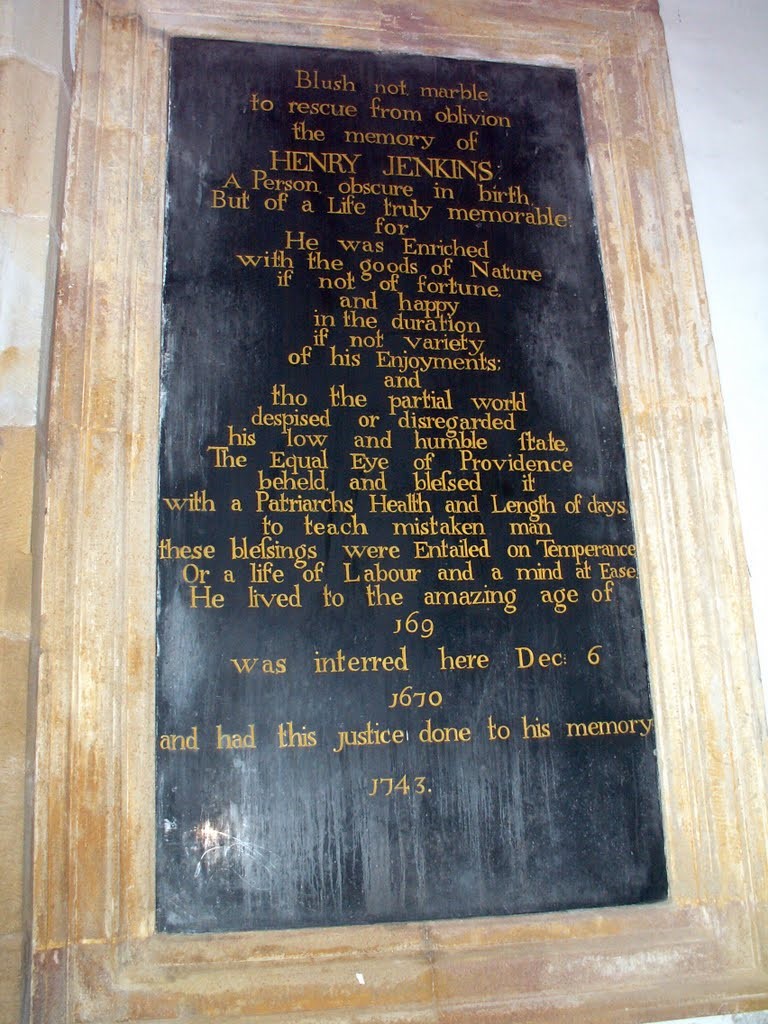 Blush not marble
to rescue from oblivion
the memory of
HENRY JENKINS:
A Person obscure in birth,
But of a Life truly memorable:
for
He was Enriched
with the goods of Nature
if not of fortune,
and happy
in the duration
if not variety
of his Enjoyments:
and
tho the partial world
despised or disregarded
his low and humble ſtate,
The Equal Eye of Providence
beheld and bleſsed it
with a Patriarchs Health and Length of days,
to teach mistaken man
these bleſsings were Entailed on Temperance
Or a life of Labour and a mind at Ease.
He lived to the amazing age of
169
was interred here Dec: 6
1670
and had this justice done to his memory
1743.